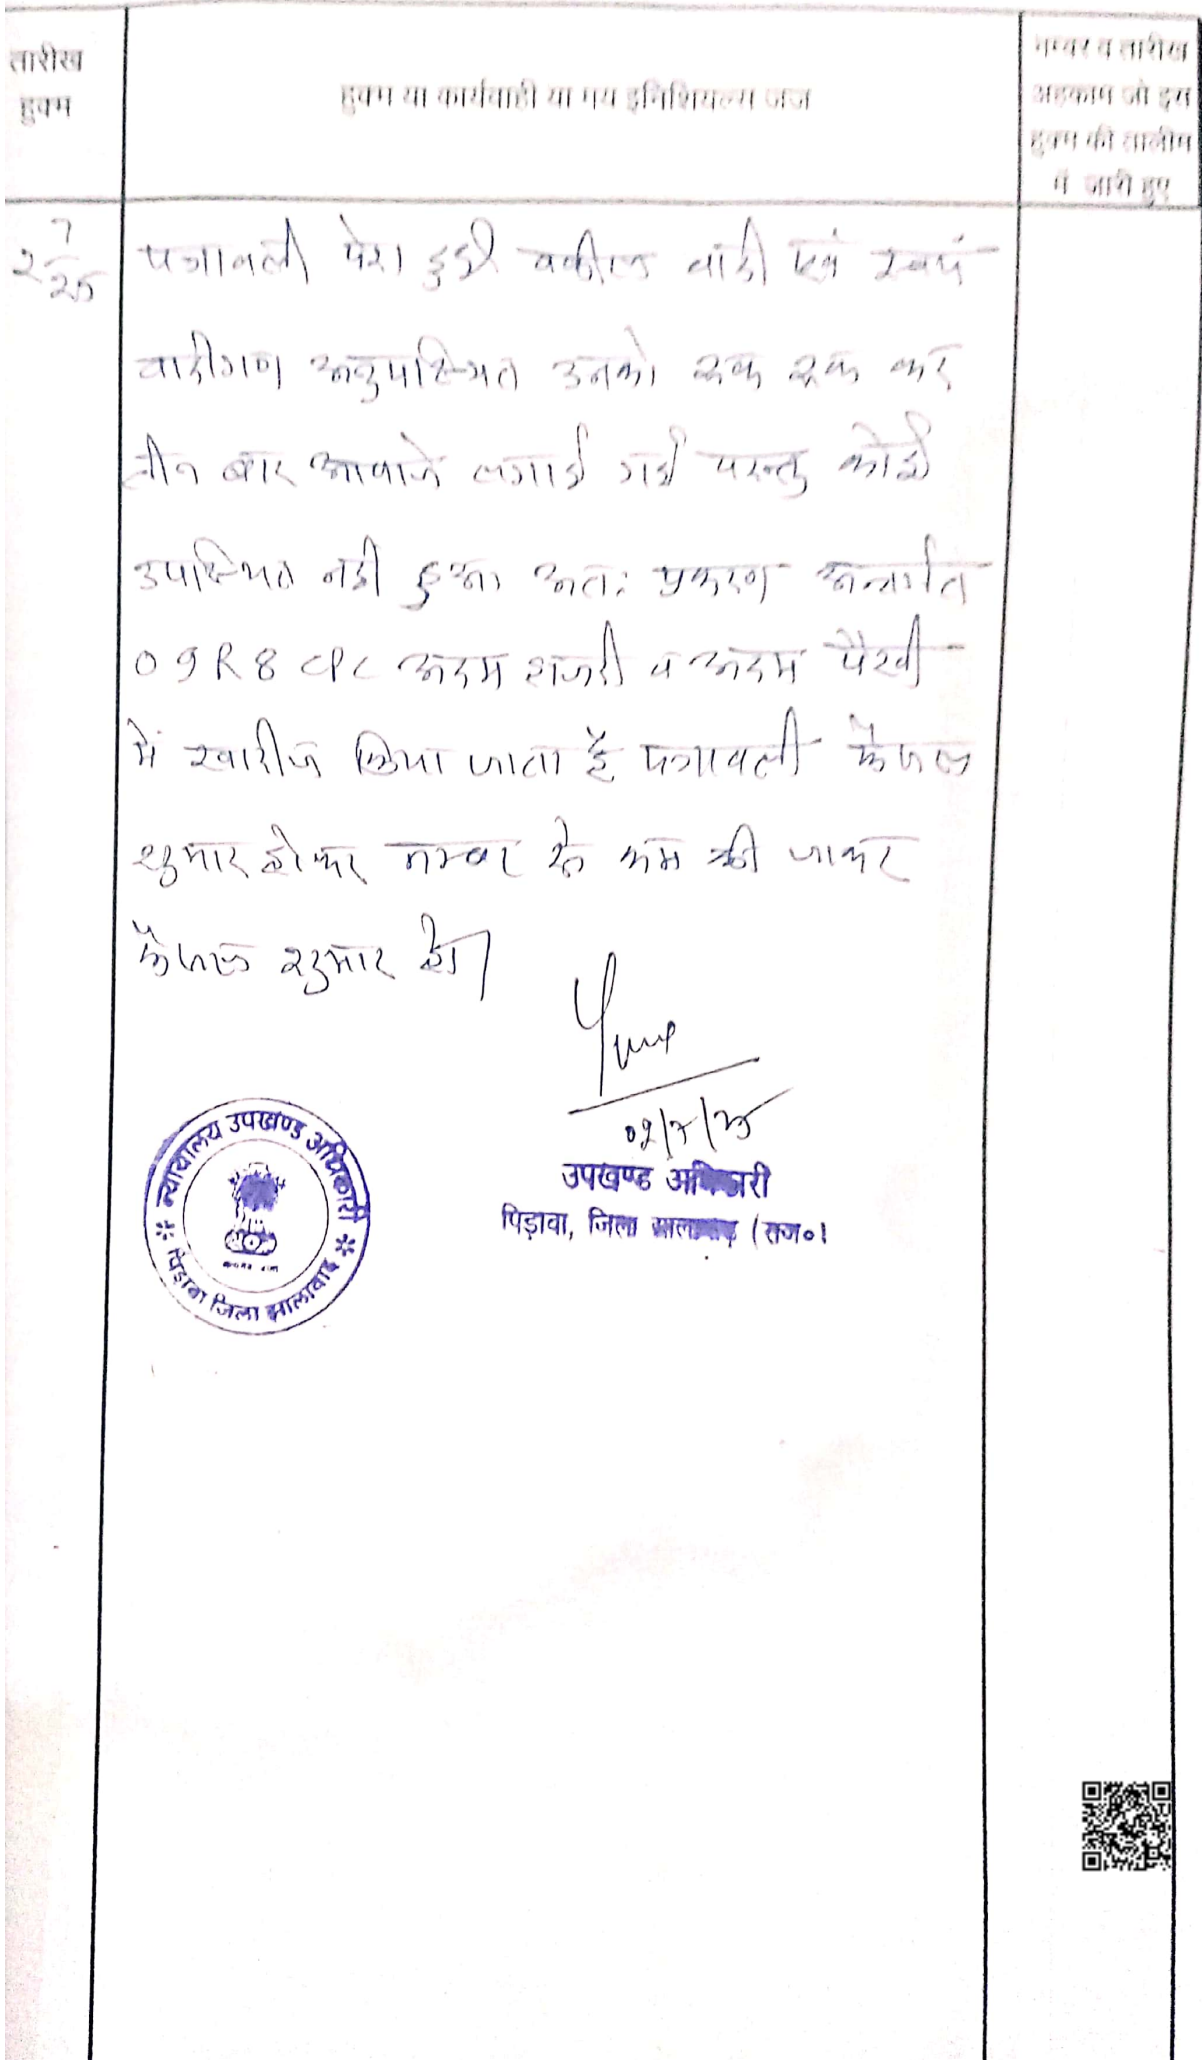 तारीख
हुक्म
हुक्म या कार्यवाही या मय इनिशियल्स जज
नम्बर व तारीख
अहकाम जो इस
हुक्म की तालीम
में जारी हुए
2 7/25
पत्रावली पेश हुई वकील वादी एवं स्वयं
वादीगण अनुपस्थित उनको एक एक कर
तीन बार आवाजे लगाई गई परन्तु कोई
उपस्थित नही हुआ अतः प्रकरण अन्तर्गत
O 9 R 8 CPC अदम हाजरी व अदम पैरवी
में खारीज किया जाता है पत्रावली फैसल
शुमार होकर नम्बर से कम की जाकर
फैसल शुमार हो।
02/7/25
उपखण्ड अधिकारी
पिड़ावा, जिला झालावाड़ (राज०)
न्यायालय उपखण्ड अधिकारी
पिड़ावा जिला झालावाड़